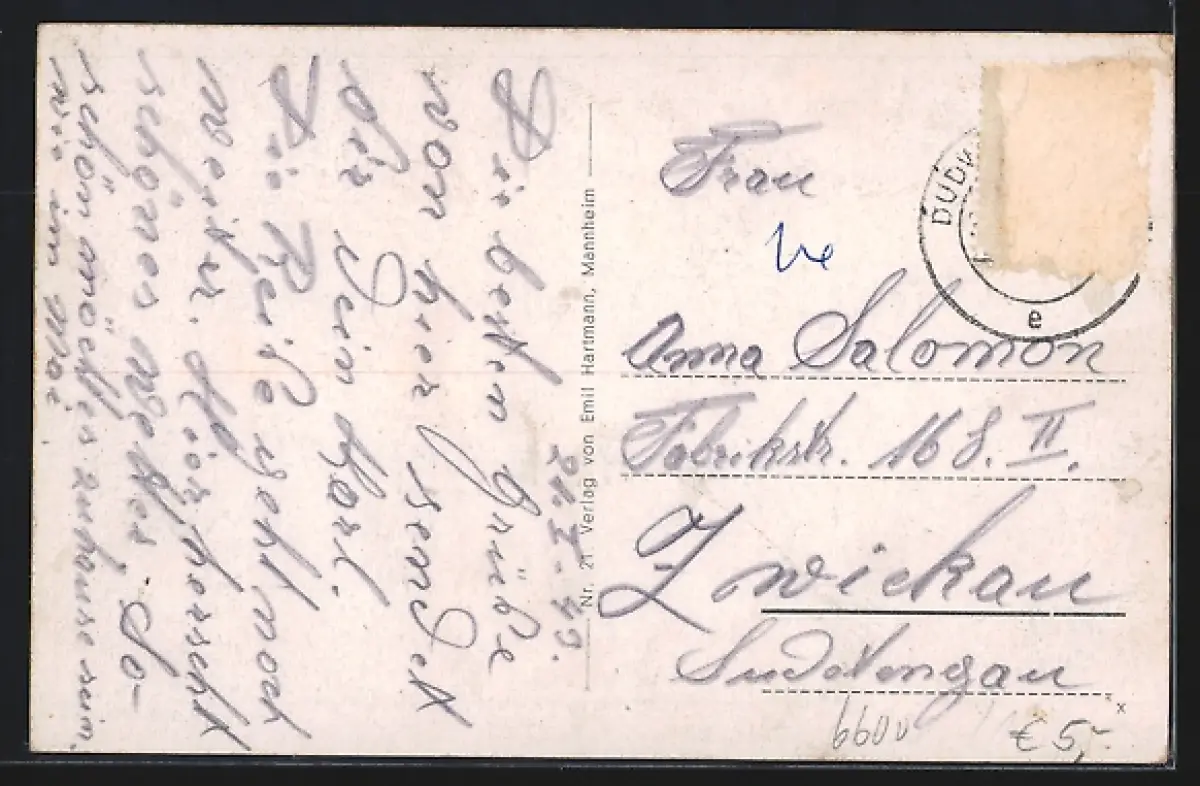 24.I.40.
Die besten Grüße
von hier sendet
Dir Dein Karl.
Die Reise geht noch
weiter. Hier herrscht
schönes Wetter. So
schön möcht es zuhause sein.
wie im Mai
Nr. 21 Verlag von Emil Hartmann, Mannheim
DUDW
e
Frau
Anna Salomon
Fabrikstr. 168. II.
Zwickau
Sudetengau
6600
€ 5,-